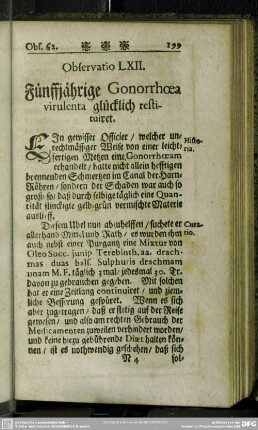 Obs. 62. 199
Observatio LXII.
Fünffjährige Gonorrhœa
virulenta glücklich resti-
tuiret.
EIn gewisser Officier / welcher un-
rechtmässiger Weise von einer leicht-
fertigen Metzen eine Gonorrhœam
erhandelt / hatte nicht allein hefftigen
brennenden Schmertzen im Canal der Harn-
Röhren / sondern der Schaden war auch so
groß / daß durch selbige täglich eine Quan-
tität stinckigte gelb-grün vermischte Materie
ausliess.
Histo-
ria.
Diesem Ubel nun abzuhelffen / suchete er
allerhand Mittel und Rath / es wurden ihm
auch nebst einer Purgantz eine Mixtur von
Oleo Succ. junip Terebinth. aa. drach-
mas duas bals. Sulphuris drachmam
unam M F. täglich 2mal / jedesmal 30. Tr.
davon zu gebrauchen gegeben. Mit solchen
hat er eine Zeitlang continuiret / und ziem-
liche Besserung gespüret. Wenn es sich
aber zugetragen / daß er stetig auf der Reise
gewesen / und also am rechten Gebrauch der
Medicamenten zuweilen verhindert worden /
und keine hiezu gebührende Diæt halten kön-
nen / ist es nothwendig geschehen / daß sich
Cura-
tio.
N 4 sol-